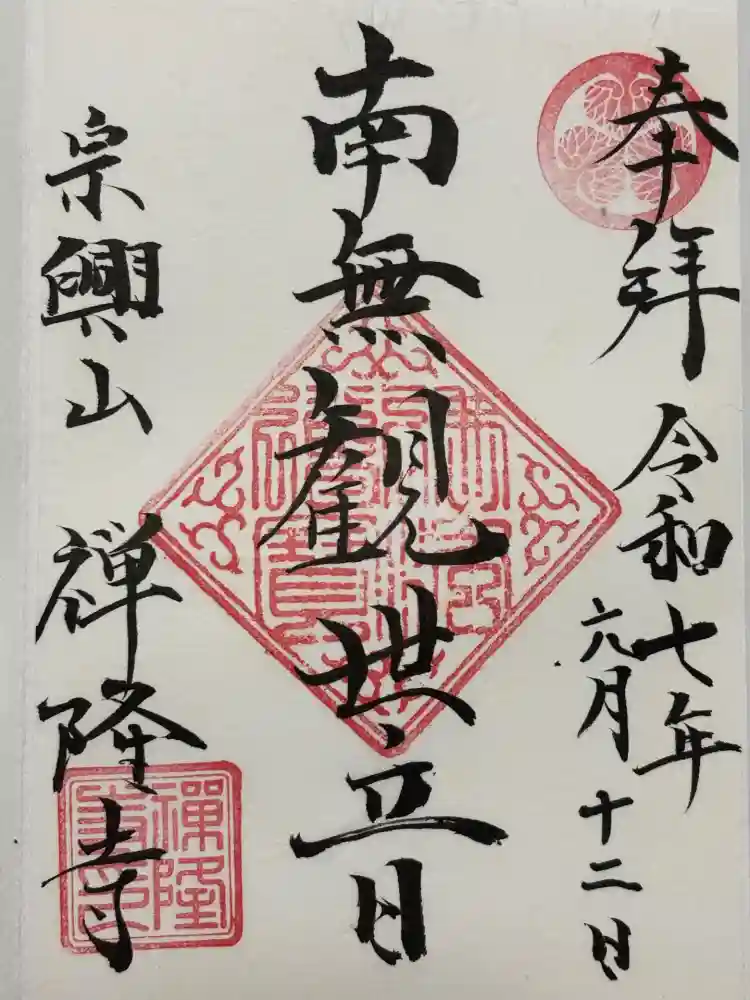 奉拝
令和七年
六月十二日
南無観世音
宗興山
禅隆寺
禪隆
寺印